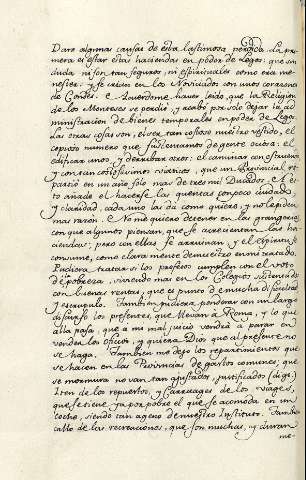 Daré algunas causas de esta lastimosa perdida. La pri-
mera es estar estas haciendas en poder de Legos: que sin
duda ni son tan seguros, ni espirituales como era me-
nester: y se crian en los Noviciados con unos corazones
de Condes. Acuerdome haver leido, que la Religion
de los Monteses se perdió, y acabó por solo dejar la ad-
ministracion de bienes temporales en poder de Legos.
Las otras cosas son, el ser tan costoso nuestro vestido, el
copioso numero que sustentamos de gente ociosa: el
edificar unos, y derribar otros: el caminar con
y con tan costosisimos viaticos, que un Provincial re-
partió en un año solo mas de tres mil Ducados. A es-
to añade el hacerse las quentas con poco cuidado,
y claridad, cada uno las dá como quiere, y no le piden
mas razon. No me quiero detener en las grangerias
con que algunos piensan, que se acrecientan las ha-
ciendas; pero con ellas se arruinan, y el espiritu se
consume, como claramente demuestro en mi tratado.
Pudiera tratar si los profesos cumplen con el voto
de pobreza, viviendo mas en los Colegios sustentados
con buenas rentas, que es punto de mucha dificultad
y escrupulo. Tambien pudiera ponderar con un largo
discurso los presentes, que llevan á Roma, y lo que
allá pasa, que á mi mal juicio vendrá á parar en
vender los oficios, y quiera Dios que al presente no
se haga. Tambien no dejo los repartimientos que
se hacen en las Provincias de gastos comunes, que
se murmura no van tan ajustados, y justificados (dige)
Iten de los repuestos, y Carruage de los viages,
que se tiene ya por pobre el que se acomoda en un
coche, siendo tan ageno de nuestro Instituto. Tambien
callo de las recreaciones, que son muchas, y duran
me-